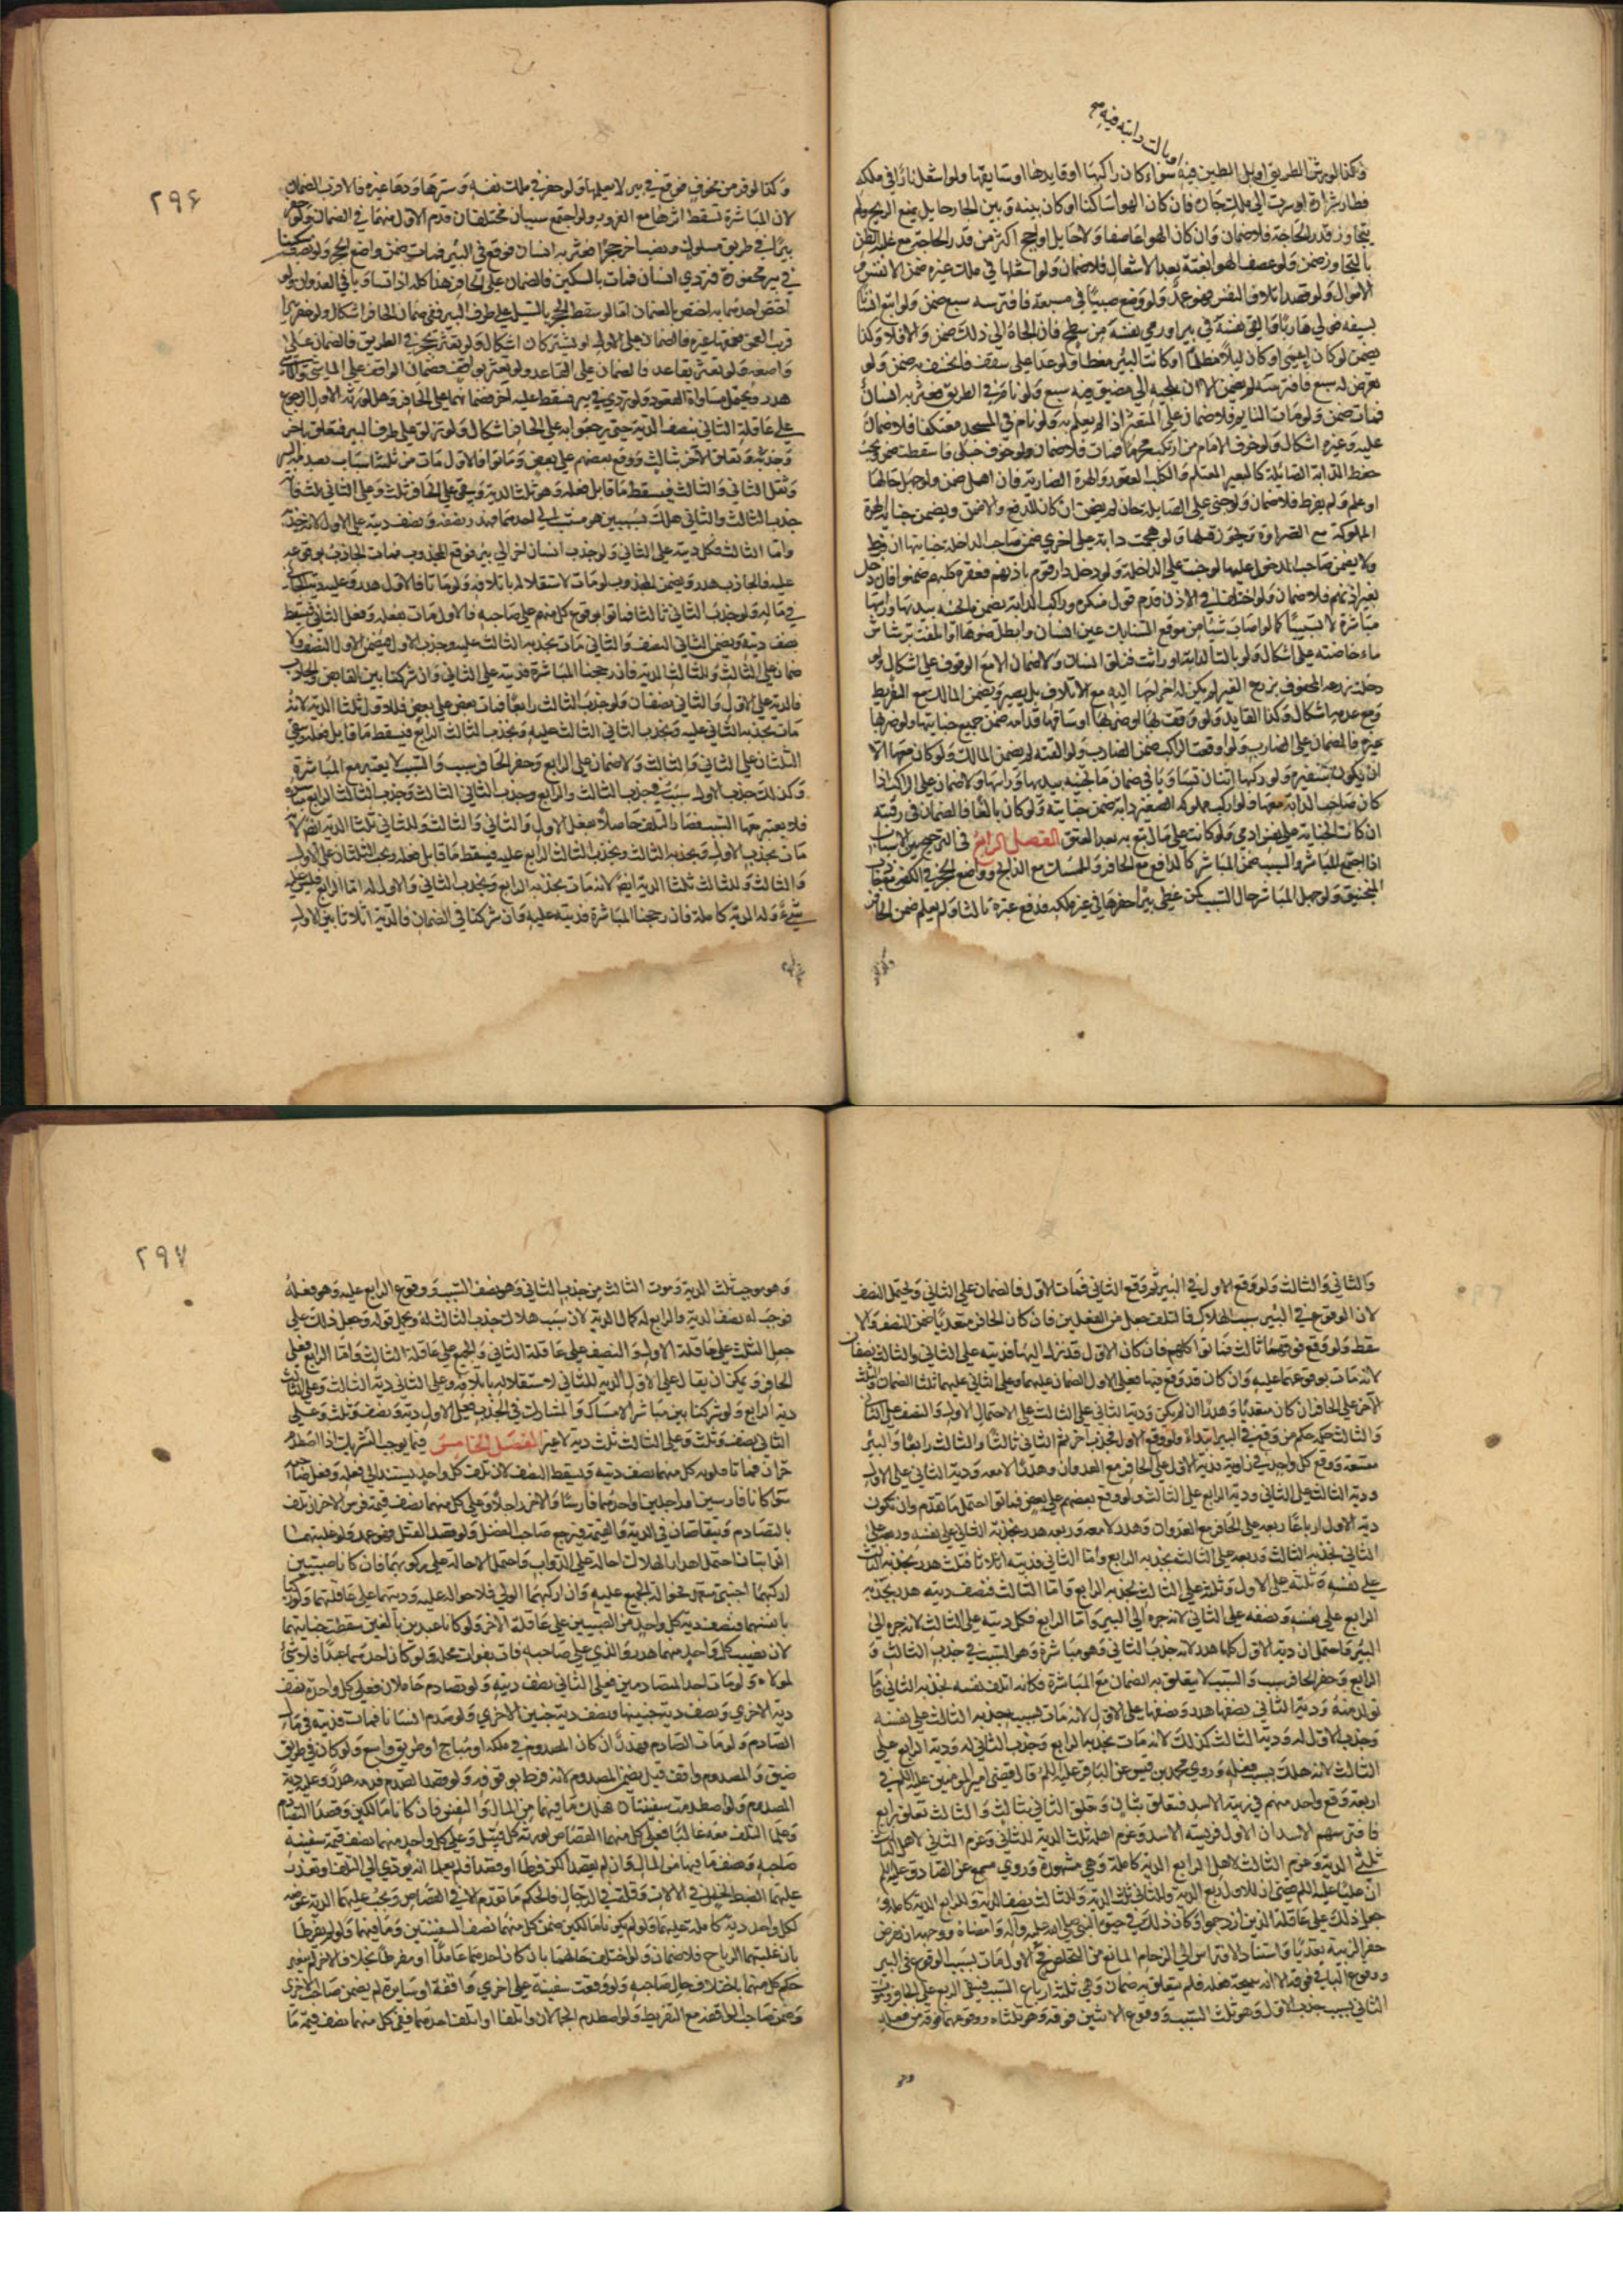 او بالت دابته فيه صح
وكذا لو رش الطريق او بل الطين فيه سواء كان راكبها او قايدها او سايقها ولو اشعل نارا في ملكه
فطار شرارة او سرت الي ملك جاره فان كان الهوا ساكنا او كان بينه وبين الجار حايل يمنع الريح ولم
يتجاوز قدر الحاجة فلا ضمان وان كان الهوا عاصفا ولا حايل او اجج اكثر من قدر الحاجة مع غلبة الظن
بالتجاوز ضمن ولو عصف الهوا بغتة بعد الاشعال فلا ضمان ولو اشعلها في ملك غيره ضمن الانفس و
الاموال ولو قصد اتلاف النفس فهو عمد ولو وضع صبيا في مسبعة فافترسه سبع ضمن ولو اتبع انسانا
بسيفه فولي هاربا فالقي نفسه في بير او رمي نفسه من سطح فان الجاه الي ذلك ضمن والا فلا وكذا
يضمن لو كان اعمي او كان ليلا مظلما او كانت البئر مغطاة ولو عدا علي سقف فانخسف به ضمن ولو
تعرض له سبع فافترسه لم يضمن الا ان يلجيه الي مضيق فيه سبع ولو نام في الطريق فعثر به انسان
فمات ضمن ولو مات النايم فلا ضمان علي المتعثر اذا لم يعلم به ولو نام في المسجد معتكفا فلا ضمان
عليه وغيره اشكال ولو خوف الامام من ارتكب محرما فمات فلا ضمان ولو خوف حبلي فاسقطت ضمن ويجب
حفظ الدابة الصايلة كالبعير المغتلم والكلب العقور والهرة الضارية فان اهمل ضمن ولو جهل حالها
او علم ولم يفرط فلا ضمان ولو جني علي الصايلة جان لم يضمن ان كان للدفع والا ضمن ويضمن جناية الهرة
المملوكة مع الضراوة ويجوز قتلها ولو هجمت دابة علي اخري ضمن صاحب الداخلة جنايتها ان فرط
ولا يضمن صاحب المدخول عليها لو جنت علي الداخلة ولو دخل دار قوم باذنهم فعقره كلبهم ضمنوا فان دخل
بغير اذنهم فلا ضمان ولو اختلفا في الاذن قدم قول منكره وراكب الدابة يضمن ما تجنيه بيديها وراسها
مباشرة لا تسبيبا كما لو اصاب شيئا من موقع السنابك عين انسان وابطل ضوءها او اتلفت برشاش
ماء خاضته علي اشكال ولو بالت الدابة او راثت فزلق انسان ولا ضمان الا مع الوقوف علي اشكال ولو
دخلت زرعه المحفوف بزرع الغير لم يكن له اخراجها اليه مع الاتلاف بل يصبر ويضمن المالك مع التفريط
ومع عدمه اشكال وكذا القايد ولو وقفت بها او ضربها او ساقها قدامه ضمن جميع جنايتها ولو ضربها
غيره فالضمان علي الضارب ولو اوقعت الراكب ضمن الضارب ولو القته لم يضمن المالك ولو كان معها الا
ان يكون بتنفيره ولو ركبها اثنان تساويا في ضمان ما تجنيه بيديها وراسها ولا ضمان علي الراكب اذا
كان صاحب الدابة معها ولو اركب مملوكه الصغير دابة ضمن جنايته ولو كان بالغا فالضمان في رقبته
ان كانت الجناية علي نفس ادمي ولو كانت علي مال يتبع به بعد العتق الفصل الرابع في الترجيح بين الاسباب
اذا اجتمع المباشر والسبب ضمن المباشر كالدافع مع الحافر والممسك مع الذابح وواضع الحجر في الكفة مع جاذب
المنجنيق ولو جهل المباشر حال السبب كمن غطي بيرا حفرها في غير ملكه فدفع غيره ثالثا ولم يعلم ضمن الحافر
وكذا لو
٢٩٦
وكذا لو فر من مخوف فوقع في بير لا يعلمها ولو حفر في ملك نفسه وسترها ودعا غيره فالاقرب الضمان
لان المباشرة تسقط اثرها مع الغرور ولو اجتمع سببان مختلفان قدم الاول منهما في الضمان ولو حفر
بيرا في طريق مسلوك ونصب اخر حجرا فعثر به انسان فوقع في البئر فمات ضمن واضع الحجر ولو نصب سكينا
في بير محفورة فتردي انسان فمات بالسكين فالضمان علي الحافر هذا كله اذا تساويا في العدوان ولو
اختص احدهما به اختص بالضمان اما لو سقط الحجر بالسيل علي طرف البير ففي ضمان الحافر اشكال ولو حفر بيرا
قريب العمق فعمقها غيره فالضمان علي الاول او يشتركان اشكال ولو تعثر بحجر في الطريق فالضمان علي
واضعه ولو تعثر بقاعد فالضمان علي القاعد ولو تعثر بواقف فضمان الواقف علي الماشي والماشي
هدر ويحتمل مساواة القعود ولو تردي في بير فسقط عليه اخر فضمانهما علي الحافر وهل لورثة الاول الرجوع
علي عاقلة الثاني بنصف الدية حتي يرجعوا به علي الحافر اشكال ولو تزلق علي طرف البير فتعلق باخر
وجذبه وتعلق الاخر بثالث ووقع بعضهم علي بعض وماتوا فالاول مات من ثلثة اسباب بصدمة البير
وثقل الثاني والثالث فيسقط ما قابل فعله وهو ثلث الدية ويبقي علي الحافر ثلث وعلي الثاني ثلث فانه
جذب الثالث والثاني هلك بسببين هو متسبب الي احدهما فهدر نصفه ونصف ديته علي الاول لانه جذبه
واما الثالث فكل ديته علي الثاني ولو جذب انسان اخر الي بير فوقع المجذوب فمات الجاذب بوقوعه
عليه فالجاذب هدر ويضمن المجذوب لو مات لاستقلاله باتلافه ولو ماتا فالاول هدر وعليه دية الثاني
في ماله ولو جذب الثاني ثالثا فماتوا بوقوع كل منهم علي صاحبه فالاول مات بفعله وفعل الثاني فيسقط
نصف ديته ويضمن الثاني النصف والثاني مات بجذبه الثالث عليه وجذب الاول فيضمن الاول النصف ولا
ضمان علي الثالث وللثالث الدية فان رجحنا المباشرة فديته علي الثاني وان شركنا بين القابض والجاذب
فالدية علي الاول والثاني نصفان ولو جذب الثالث رابعا فمات بعض علي بعض فللاول ثلثا الدية لانه
مات بجذبه الثاني عليه وبجذب الثاني الثالث عليه وبجذب الثالث الرابع فيسقط ما قابل فعله ويبقي
الثلثان علي الثاني والثالث ولا ضمان علي الرابع وحفر الحافر سبب والسبب لا يعتبر مع المباشرة
وكذلك جذب الاول سبب في جذب الثالث والرابع وجذب الثاني الثالث وجذب الثالث الرابع مباشرة
فلا يعتبر معها السبب فصار التلف حاصلا بفعل الاول والثاني والثالث وللثاني ثلثا الدية ايضا لانه
مات بجذب الاول وبجذبه الثالث وبجذب الثالث الرابع عليه فيسقط ما قابل فعله ويجب الثلثان علي الاول
والثالث وللثالث ثلثا الدية ايضا لانه مات بجذبه الرابع وبجذب الثاني والاول له اما الرابع فليس عليه
شيء وله الدية كاملة فان رجحنا المباشرة فديته عليه وان شركنا في الضمان فالدية اثلاثا بين الاول
والثاني والثالث ولو وقع الاول في البير ثم وقع الثاني فمات الاول فالضمان علي الثاني ويحتمل النصف
لان الوقوع في البير سبب الهلاك فالتلف حصل من الفعلين فان كان الحافر متعديا ضمن النصف والا
سقط ولو وقع فوقهما ثالث فماتوا كلهم فان كان الاول قد نزل اليها فديته علي الثاني والثالث نصفان
لانه مات بوقوعهما عليه وان كان قد وقع فيها فعلي الاول الضمان عليهما وعلي الثاني عليهما ثلثا الضمان والثلث
الاخر علي الحافر ان كان متعديا وهدر ان لم يكن ودية الثاني علي الثالث علي الاحتمال الاول والنصف علي الثاني
والثالث حكمه حكم من وقع في البير ابتداء ولو وقع الاول فجذب اخر ثم الثاني ثالثا والثالث رابعا والبير
متسعة ووقع كل واحد في زاوية فدية الاول علي الحافر مع العدوان وهدر لا معه ودية الثاني علي الاول
ودية الثالث علي الثاني ودية الرابع علي الثالث ولو وقع بعضهم علي بعض فماتوا احتمل ما تقدم وان تكون
دية الاول ارباعا ربعه علي الحافر مع العدوان وهدر لا معه وربعه هدر بجذبه الثاني علي نفسه وربعه علي
الثاني بجذبه الثالث وربعه علي الثالث بجذبه الرابع واما الثاني فديته اثلاثا فثلث هدر بجذبه الثالث
علي نفسه وثلثه علي الاول وثلثه علي الثالث بجذبه الرابع واما الثالث فنصف ديته هدر بجذبه
الرابع علي نفسه ونصفه علي الثاني لانه جره الي البير واما الرابع فكل ديته علي الثالث لانه جره الي
البير واحتمل ان دية الاول كلها هدر لانه جذب الثاني وهو مباشرة وهو السبب في جذب الثالث و
الرابع وحفر الحافر سبب والسبب لا يتعلق به الضمان مع المباشرة فكانه اتلف نفسه بجذبه الثاني وما
تولد منه ودية الثاني نصفها هدر ونصفها علي الاول لانه مات بسبب جذبه الثالث علي نفسه
وجذب الاول له ودية الثالث كذلك لانه مات بجذبه الرابع وجذب الثاني له ودية الرابع علي
الثالث لانه هلك بسبب فعله وروي محمد بن قيس عن الباقر عليه السلم قال قضي امير المومنين عليه السلم في
اربعة وقع واحد منهم في زبية الاسد فتعلق بثان وتعلق الثاني بثالث والثالث تعلق برابع
فافترسهم الاسد ان الاول فريسة الاسد وغرم اهله ثلث الدية للثاني وغرم الثاني لاهل الثالث
ثلثي الدية وغرم الثالث لاهل الرابع الدية كاملة وهي مشهورة وروي مسمع عن الصادق عليه السلم
ان عليا عليه السلم قضي ان للاول ربع الدية وللثاني ثلث الدية وللثالث نصف الدية وللرابع الدية كاملة و
جعل ذلك علي عاقلة الذين ازدحموا وكان ذلك في حيوة النبي صلي الله عليه وآله وامضاه ووجهه ان يفرض
حفر الزبية تعديا واستناد الافتراس الي الزحام المانع من التخلص فالاول مات بسبب الوقوع في البير
ووقوع الباقي فوقه الا انه نتيجة فعله فلم يتعلق به ضمان وهي ثلثة ارباع السبب فيبقي الربع علي الحافر وموت
الثاني بسبب جذب الاول وهو ثلث السبب ووقوع الاثنين فوقه وهو ثلثاه ووقوعهما فوقه من فعله
وهو
٢٩٧
وهو موجب ثلث الدية وموت الثالث من جذب الثاني وهو نصف السبب ووقوع الرابع عليه وهو فعله
فوجب له نصف الدية والرابع له كمال الدية لان سبب هلاكه جذب الثالث له ويحمل قوله وجعل ذلك علي
جعل الثلث علي عاقلة الاول والنصف علي عاقلة الثاني والجميع علي عاقلة الثالث واما الرابع فعلي
الحافر ويمكن ان يقال علي الاول الدية للثاني لاستقلاله باتلافه وعلي الثاني دية الثالث وعلي الثالث
دية الرابع ولو شركنا بين مباشر الامساك والمشارك في الجذب فعلي الاول دية ونصف وثلث وعلي
الثاني نصف وثلث وعلي الثالث ثلث دية لا غير الفصل الخامس فيما يوجب التشريك اذا اصطدم
حران فماتا فلورثة كل منهما نصف ديته ويسقط النصف لان تلف كل واحد يستند الي فعله وفعل صاحبه
سواء كانا فارسين او راجلين او احدهما فارسا والاخر راجلا وعلي كل منهما نصف قيمة فرس الاخر ان تلف
بالتصادم ويتقاصان في الدية والقيمة فيرجع صاحب الفضل ولو قصد القتل فهو عمد ولو غلبتهما
الدابتان احتمل اهدار الهلاك احالة علي الدواب واحتمل الاحالة علي ركوبهما فان كانا صبيين
اركبهما اجنبي متعد بحوالة الجميع عليه وان اركبهما الولي فلا حوالة عليه وديتهما علي عاقلتهما ولو ركبا
بانفسهما فنصف دية كل واحد من الصبيين علي عاقلة الاخر ولو كانا عبدين بالغين سقطت جنايتهما
لان نصيب كل واحد منهما هدر والذي علي صاحبه فات بفوات محله ولو كان احدهما عبدا فلا شيء
لمولاه ولو مات احد المتصادمين فعلي الثاني نصف ديته ولو تصادم حاملان فعلي كل واحدة نصف
دية الاخري ونصف دية جنينها ونصف دية جنين الاخري ولو صدم انسانا فمات فديته في مال
الصادم ولو مات الصادم فهدر ان كان المصدوم في ملكه او مباح او طريق واسع ولو كان في طريق
ضيق والمصدوم واقف قيل يضمن المصدوم لانه فرط بوقوفه ولو قصد الصدم فدمه هدر وعليه دية
المصدوم ولو اصطدمت سفينتان هلك ما فيهما من المال والنفوس فان كانا مالكين وقصدا التصادم
وعلما التلف معه غالبا فعلي كل منهما القصاص لورثة كل قتيل وعلي كل واحد منهما نصف قيمة سفينة
صاحبه ونصف ما فيها من المال وان لم يقصدا لكن فرطا او قصدا فلم يعلما انه يودي الي التلف او تعذر
عليهما الضبط لخلل في الالات وقلة في الرجال فالحكم ما تقدم الا في القصاص ويجب عليهما الدية عوضه
لكل واحد دية كاملة عليهما ولو لم يكونا مالكين ضمن كل منهما نصف السفينتين وما فيهما ولو لم يفرطا
بان غلبتهما الرياح فلا ضمان ولو اختلف حالهما بان كان احدهما عامدا او مفرطا بخلاف الاخر لم يتغير
حكم كل منهما باختلاف حال صاحبه ولو وقعت سفينة علي اخري واقفة او سايرة لم يضمن صاحب الاخري
وضمن صاحب الواقعة مع التفريط ولو اصطدم الحمالان واتلفا او اتلف احدهما فعلي كل منهما نصف قيمة ما